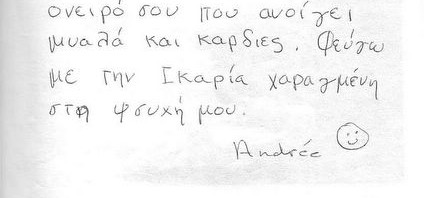 ονειρό σου που ανοίγει
μυαλά και καρδιες. Φεύγω
με την Ικαρία χαραγμένη
στη ψυχή μου.
Andrée